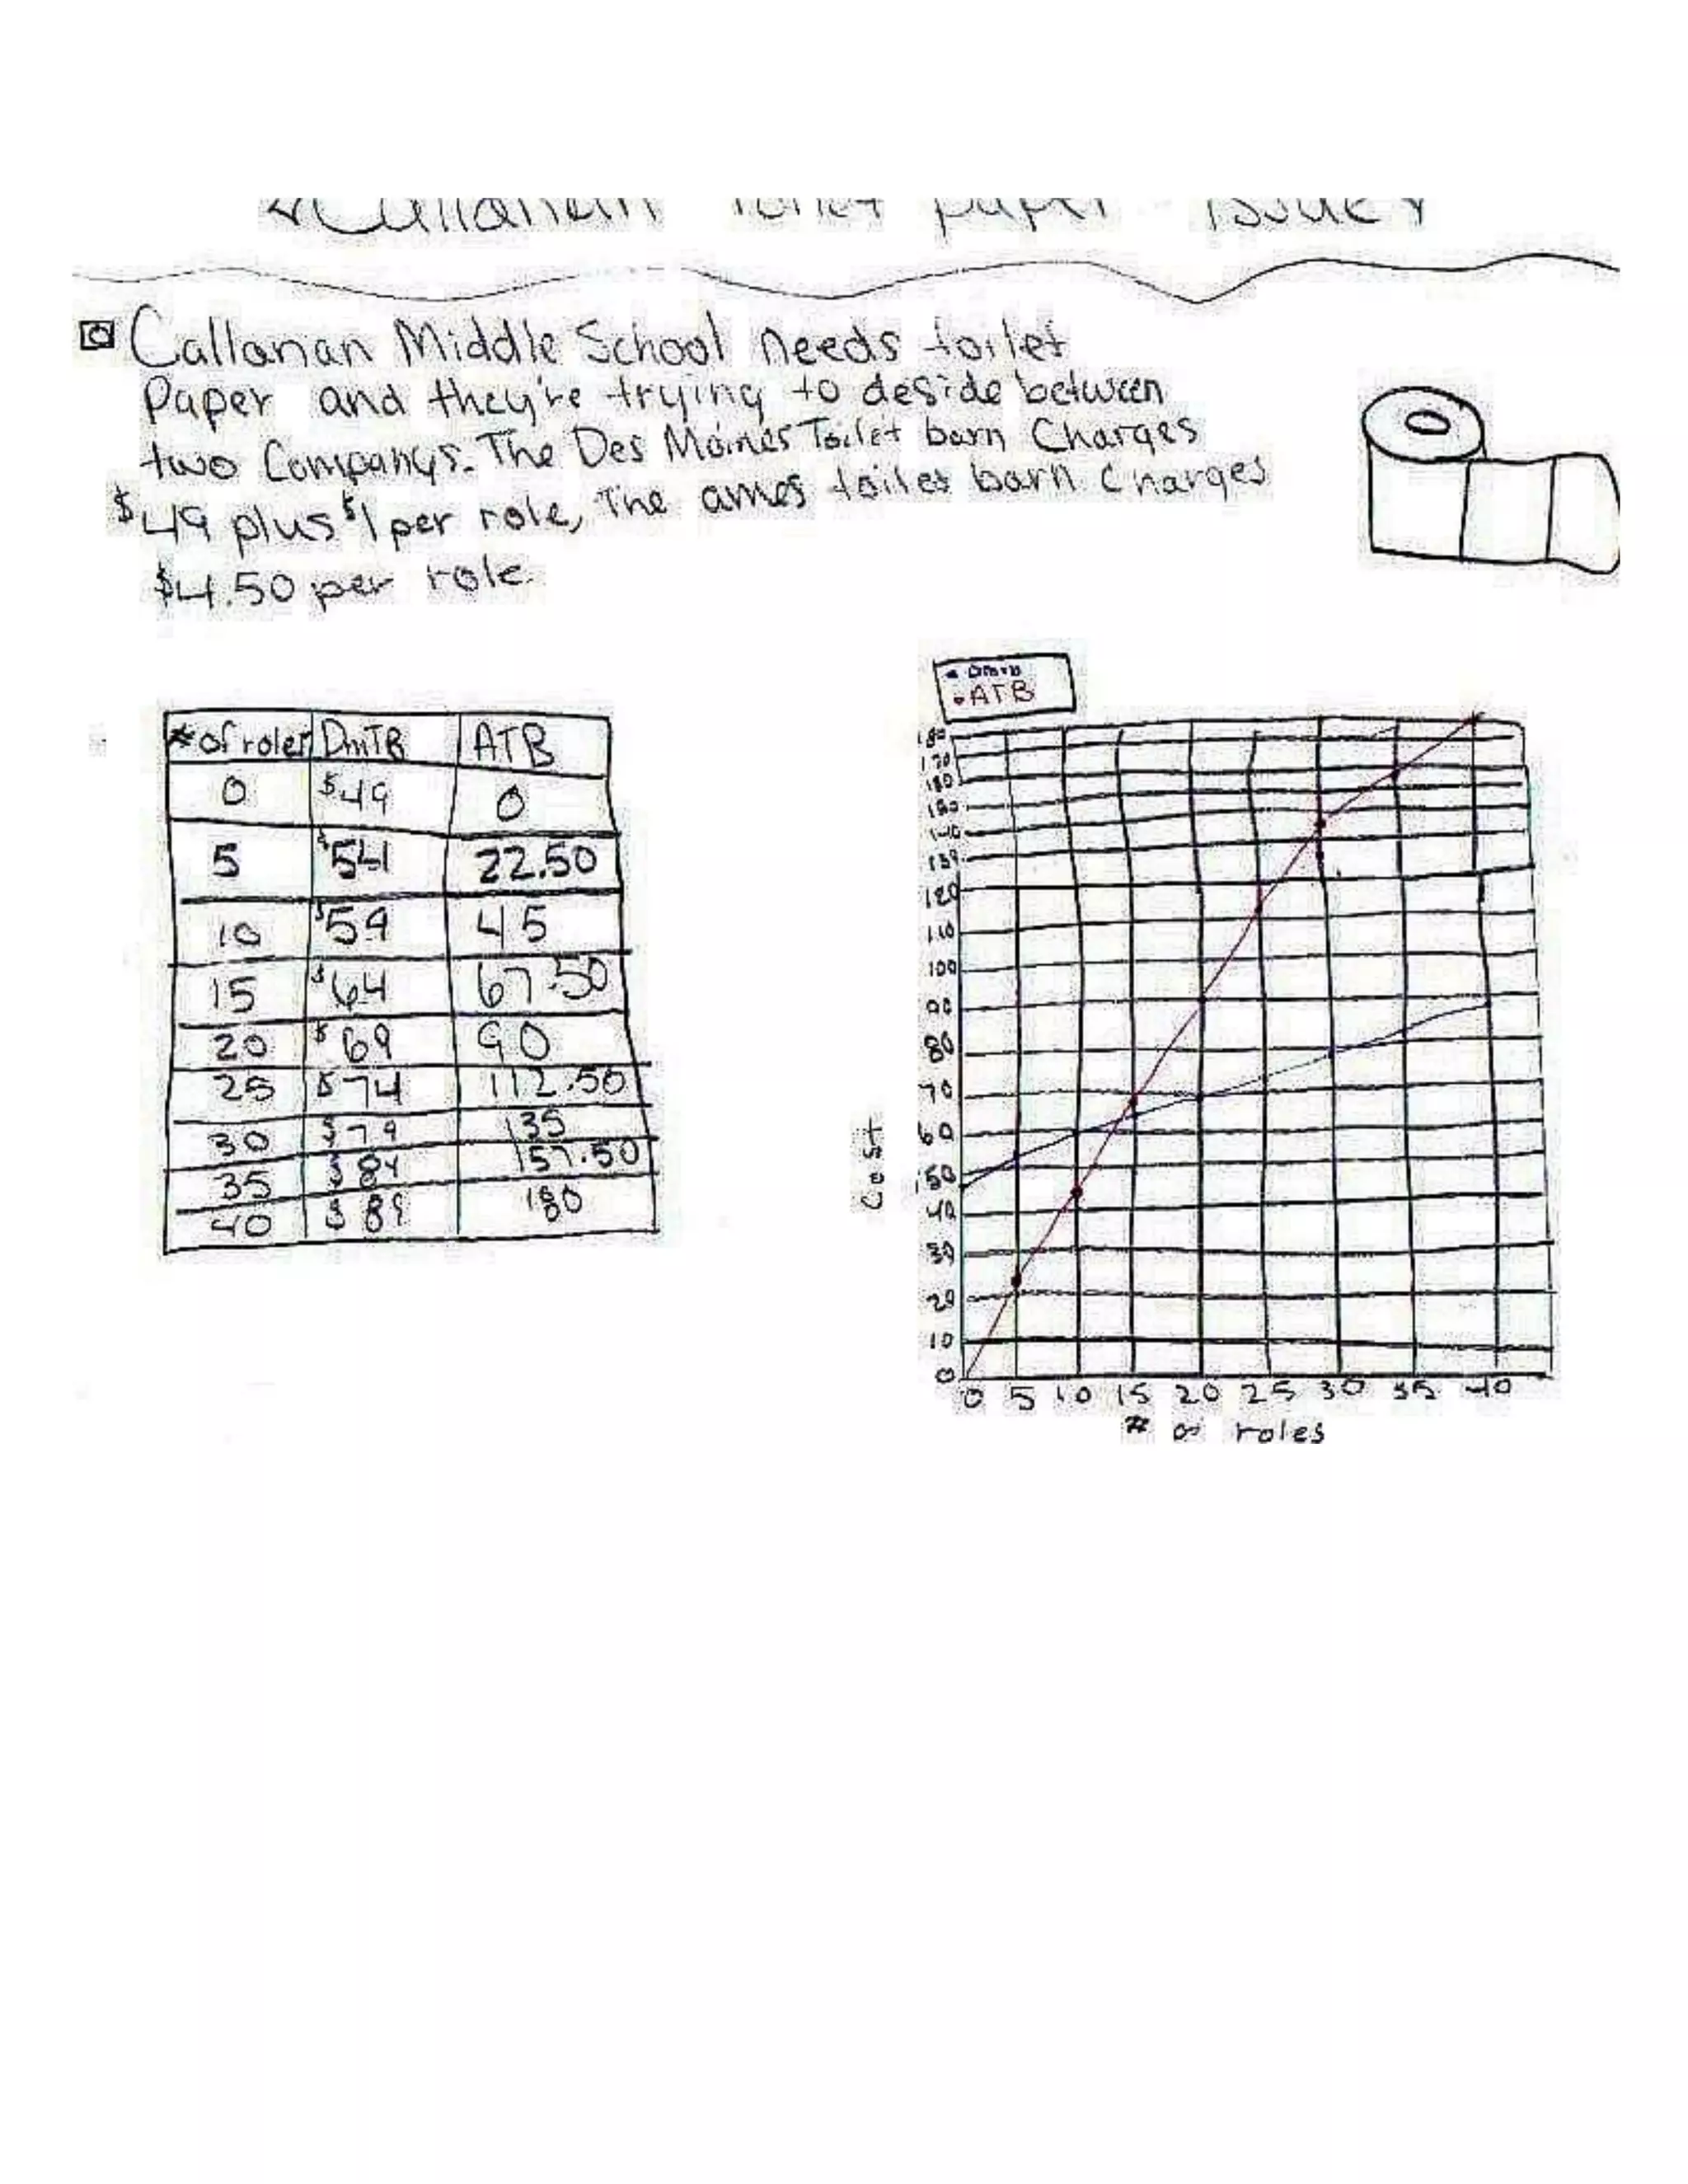 Callanan toilet paper issue
Callanan Middle School needs toilet
Paper and they're trying to deside between
two Companys. The Des Moines Toilet barn Charges
$49 plus $1 per role, The ames toilet barn Charges
$4.50 per role.
DMTB
ATB
# of roles DmTB ATB
0 $49 0
5 $54 22.50
10 $59 45
15 $64 67.50
20 $69 90
25 $74 112.50
30 $79 135
35 $84 157.50
40 $89 180
180
170
160
150
140
130
120
110
100
90
80
70
60
50
40
30
20
10
0
Cost
0 5 10 15 20 25 30 35 40
# of roles